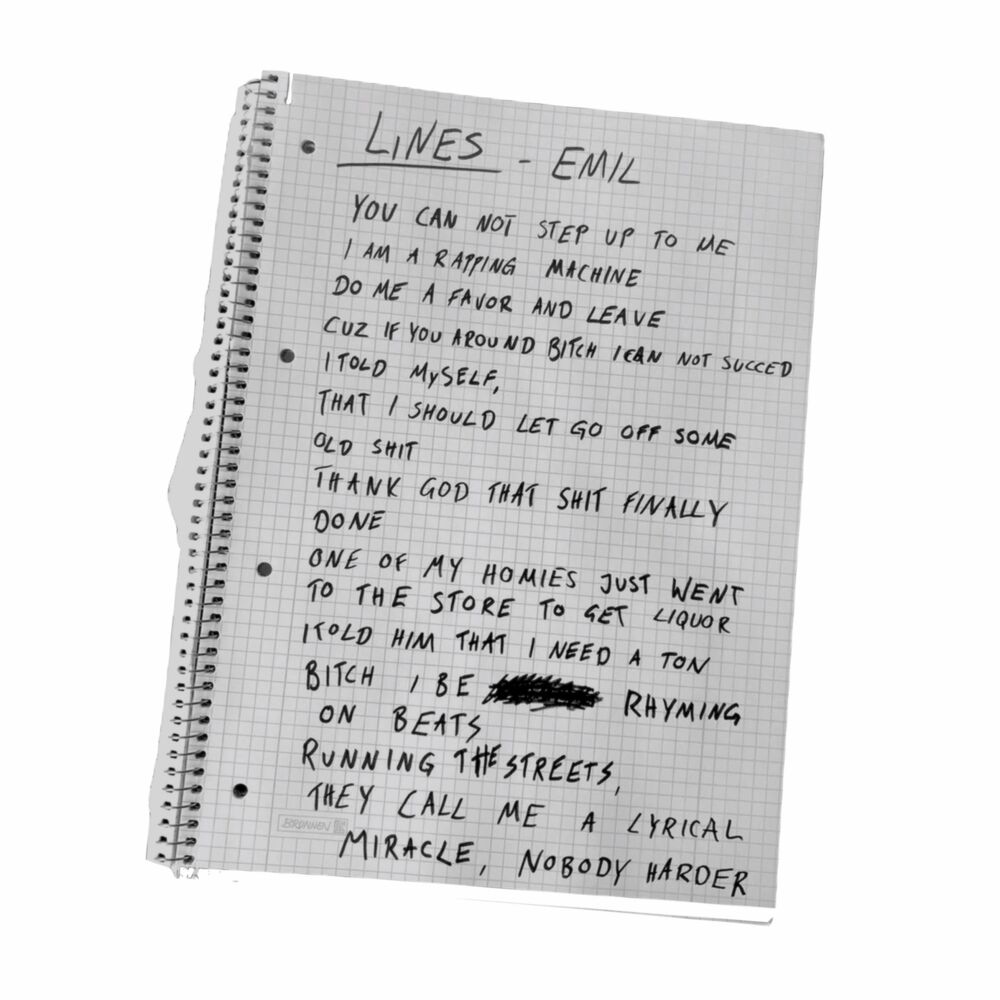 LINES - EMIL
YOU CAN NOT STEP UP TO ME
I AM A RAPPING MACHINE
DO ME A FAVOR AND LEAVE
CUZ IF YOU AROUND BITCH I CAN NOT SUCCED
I TOLD MYSELF,
THAT I SHOULD LET GO OFF SOME
OLD SHIT
THANK GOD THAT SHIT FINALLY
DONE
ONE OF MY HOMIES JUST WENT
TO THE STORE TO GET LIQUOR
I TOLD HIM THAT I NEED A TON
BITCH I BE RHYMING
ON BEATS
RUNNING THE STREETS,
THEY CALL ME A LYRICAL
MIRACLE, NOBODY HARDER